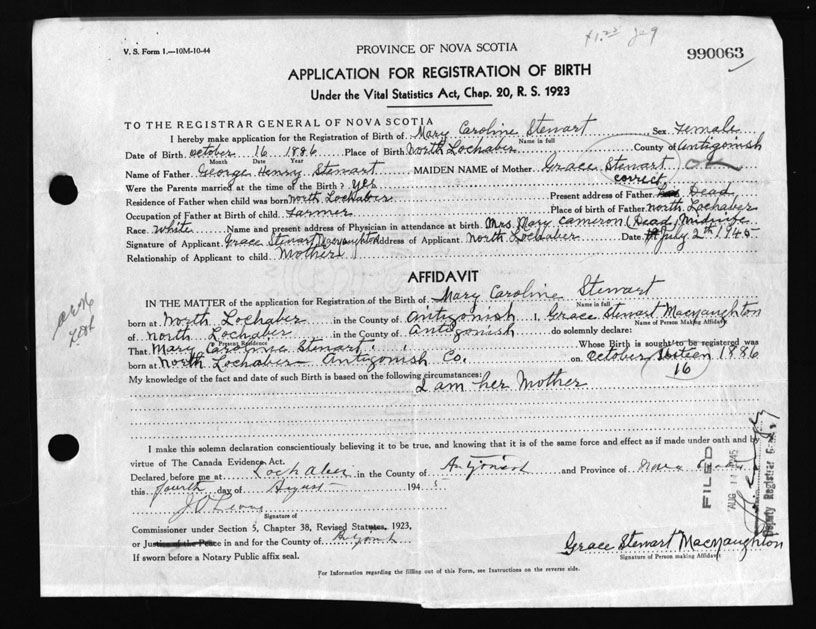 V. S. Form 1.—10M-10-44
PROVINCE OF NOVA SCOTIA
990063
APPLICATION FOR REGISTRATION OF BIRTH
Under the Vital Statistics Act, Chap. 20, R. S. 1923
TO THE REGISTRAR GENERAL OF NOVA SCOTIA
I hereby make application for the Registration of Birth of Mary Caroline Stewart Sex Female
Name in full
Date of Birth October 16 1886 Place of Birth North Lochaber County of Antigonish
Month Date Year
Name of Father George Henry Stewart MAIDEN NAME of Mother Grace Stewart OK
correct
Were the Parents married at the time of the Birth? yes
Residence of Father when child was born North Lochaber Present address of Father Dead
Occupation of Father at Birth of child Farmer Place of birth of Father North Lochaber
Race White Name and present address of Physician in attendance at birth Mrs Mary Cameron (Dead) Midwife
Signature of Applicant Grace Stewart Macnaughton Address of Applicant North Lochaber Date July 2th 1945
Relationship of Applicant to child Mother
AFFIDAVIT
IN THE MATTER of the application for Registration of the Birth of Mary Caroline Stewart
Name in full
born at North Lochaber in the County of Antigonish I, Grace Stewart Macnaughton
Name of Person Making Affidavit
of North Lochaber in the County of Antigonish do solemnly declare:
Present Residence
That Mary Caroline Stewart Whose Birth is sought to be registered was
born at North Lochaber Antigonish Co. on October Sixteen 1886
16
My knowledge of the fact and date of such Birth is based on the following circumstances:
I am her Mother
I make this solemn declaration conscientiously believing it to be true, and knowing that it is of the same force and effect as if made under oath and by
virtue of The Canada Evidence Act.
Declared before me at Lochaber in the County of Antigonish and Province of Nova Scotia
this fourth day of August 1945
Signature of
Commissioner under Section 5, Chapter 38, Revised Statutes, 1923,
or Justice of the Peace in and for the County of Antigonish
If sworn before a Notary Public affix seal.
Grace Stewart Macnaughton
Signature of Person making Affidavit
For Information regarding the filling out of this Form, see Instructions on the reverse side.
FILED
Deputy Registrar General